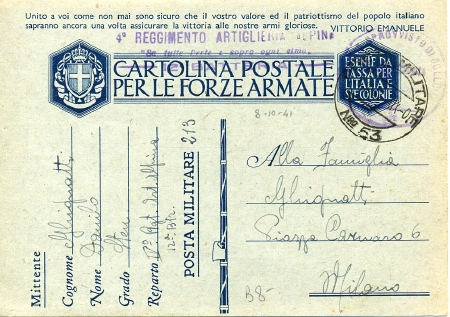 Unito a voi come non mai sono sicuro che il vostro valore ed il patriottismo del popolo italiano
sapranno ancora una volta assicurare la vittoria alle nostre armi gloriose. VITTORIO EMANUELE
4° REGGIMENTO ARTIGLIERIA ALPINA
CARTOLINA POSTALE
PER LE FORZE ARMATE
ESENTE DA
TASSA PER
L'ITALIA E
SUE COLONIE
N° 53
8-10-41
Mittente
Cognome Ghignatti
Nome Danilo
Grado
Reparto
12ª Btr.
POSTA MILITARE 213
Alla Famiglia
Ghignatti
Piazza Carnaro 6
Milano
B8-